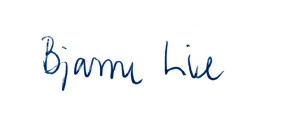 Bjarne Lie